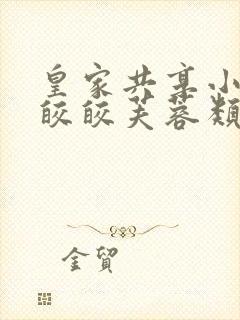 皇家共享小
皎皎芙蓉類
金貿